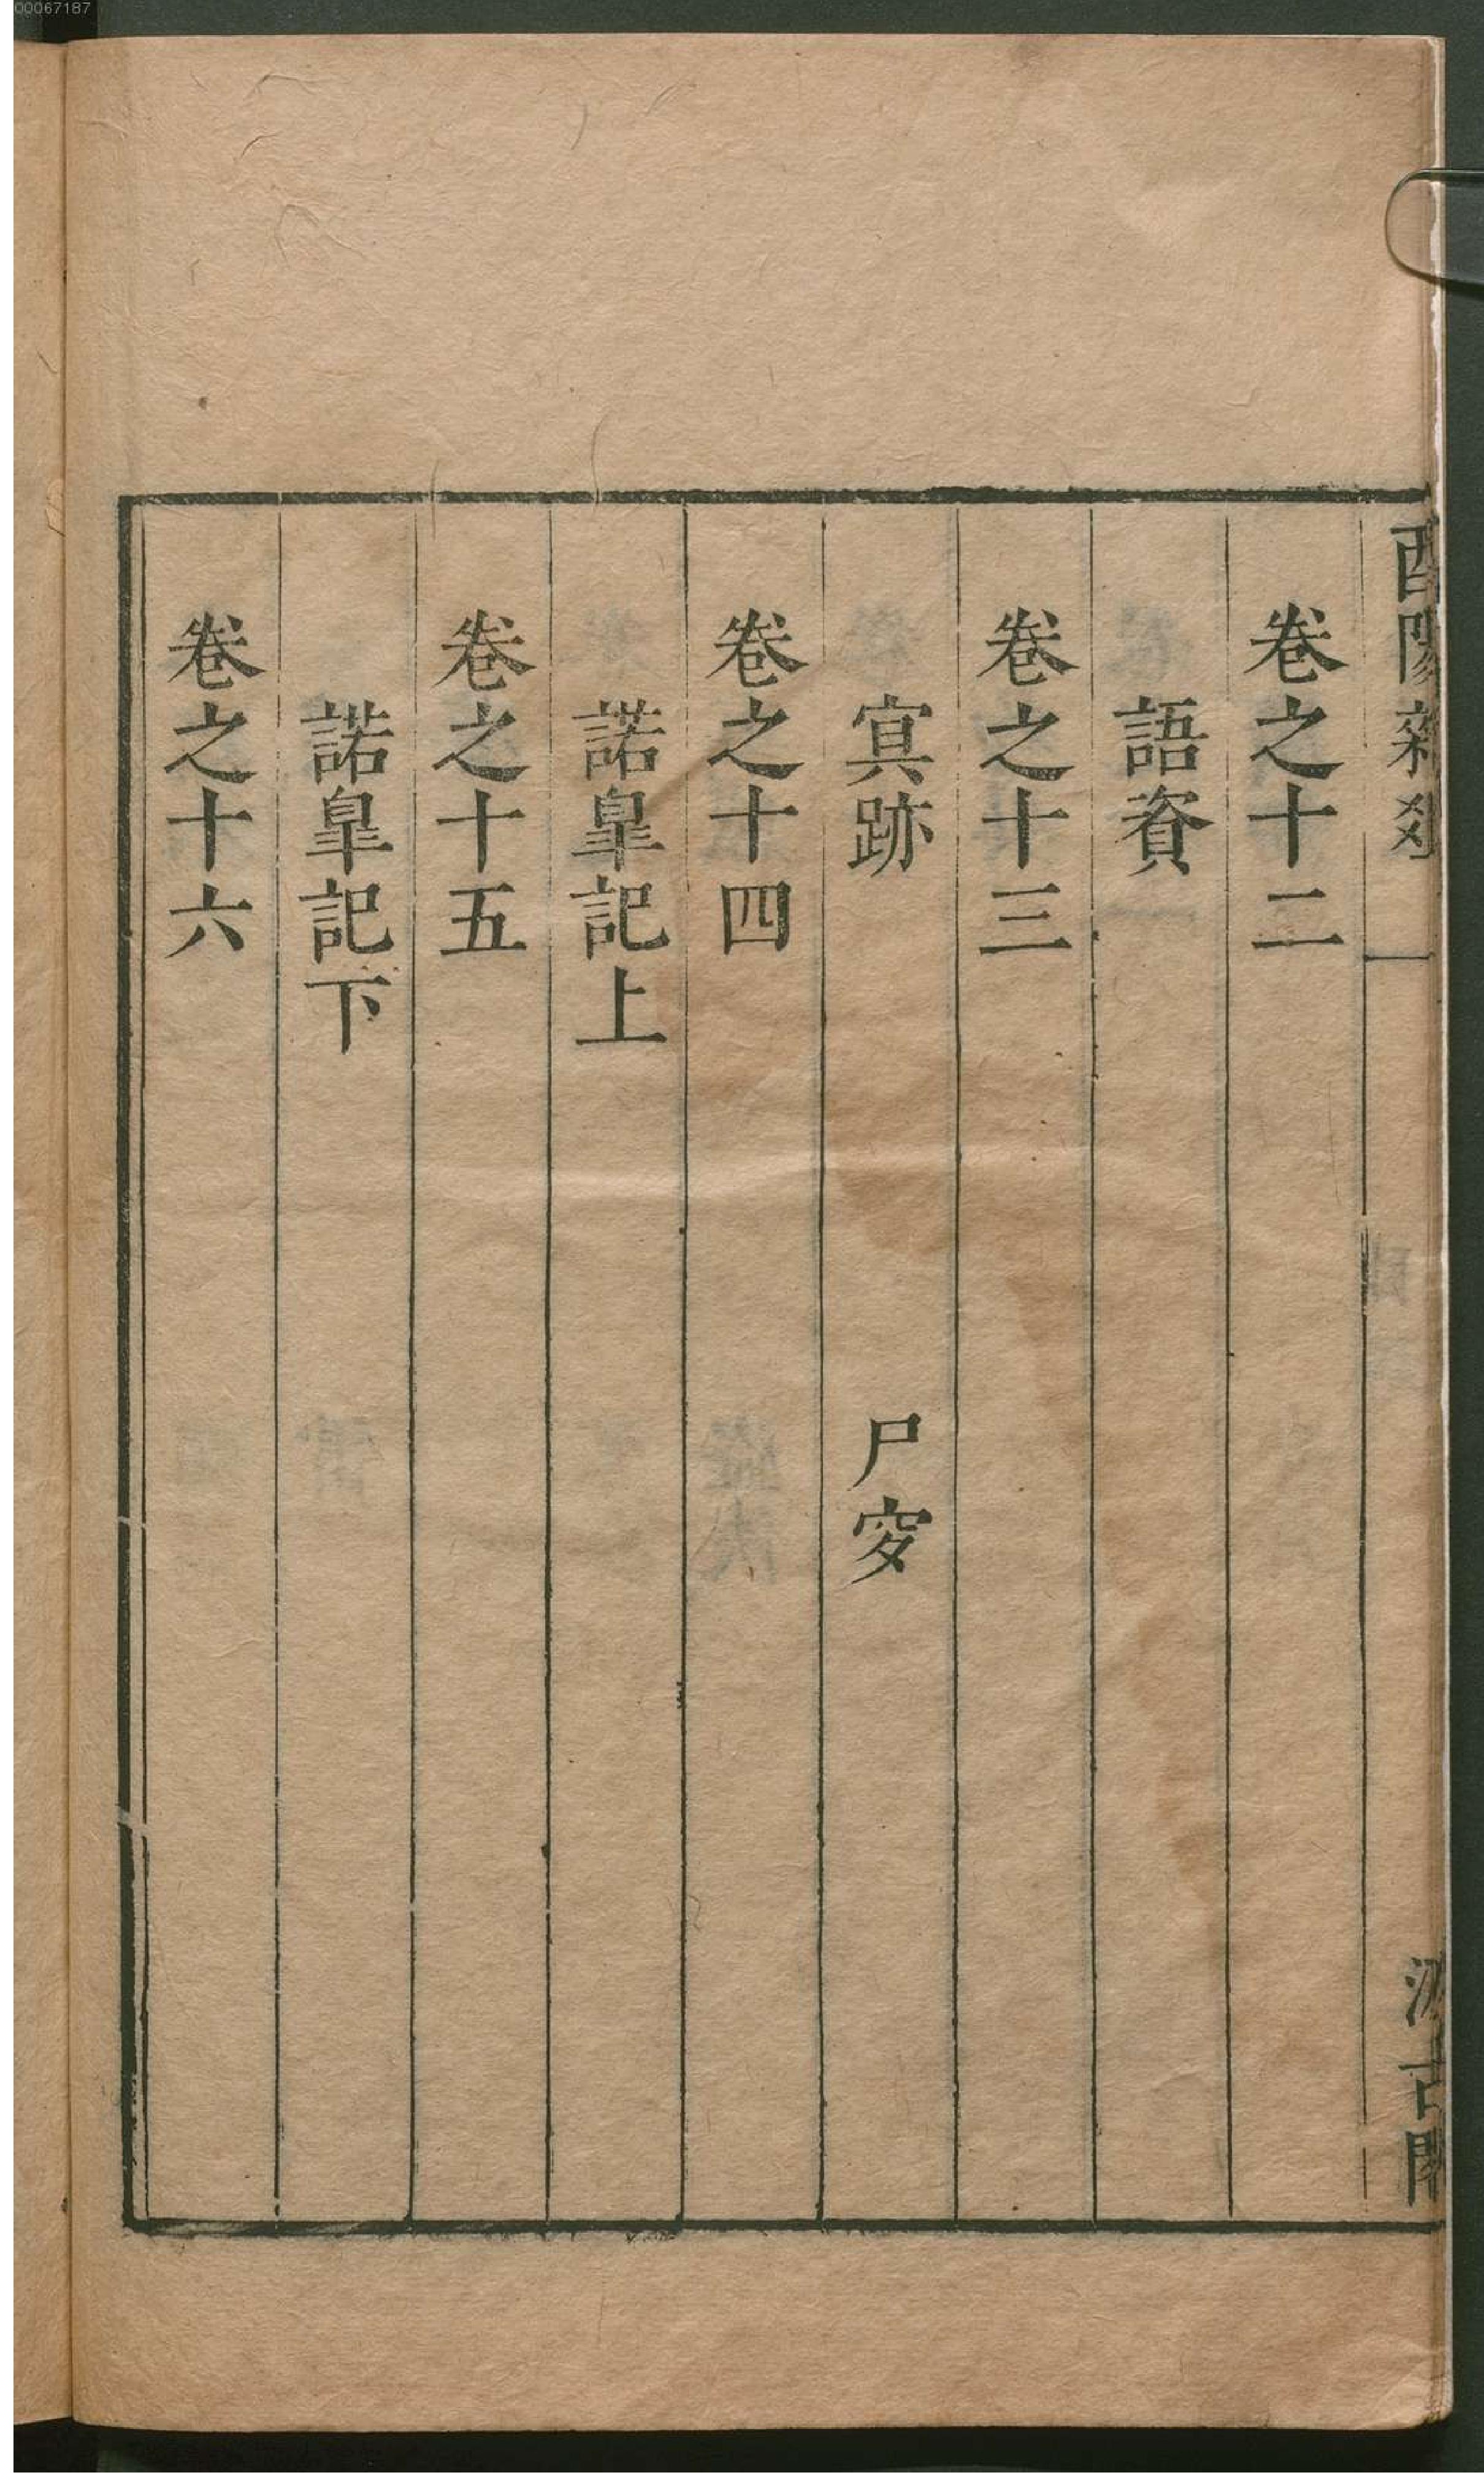 酉陽雜
卷之十二
語資
卷之十三
㝠跡 尸穸
卷之十四
諾臯記上
卷之十五
諾臯記下
卷之十六
汲古閣
00067187